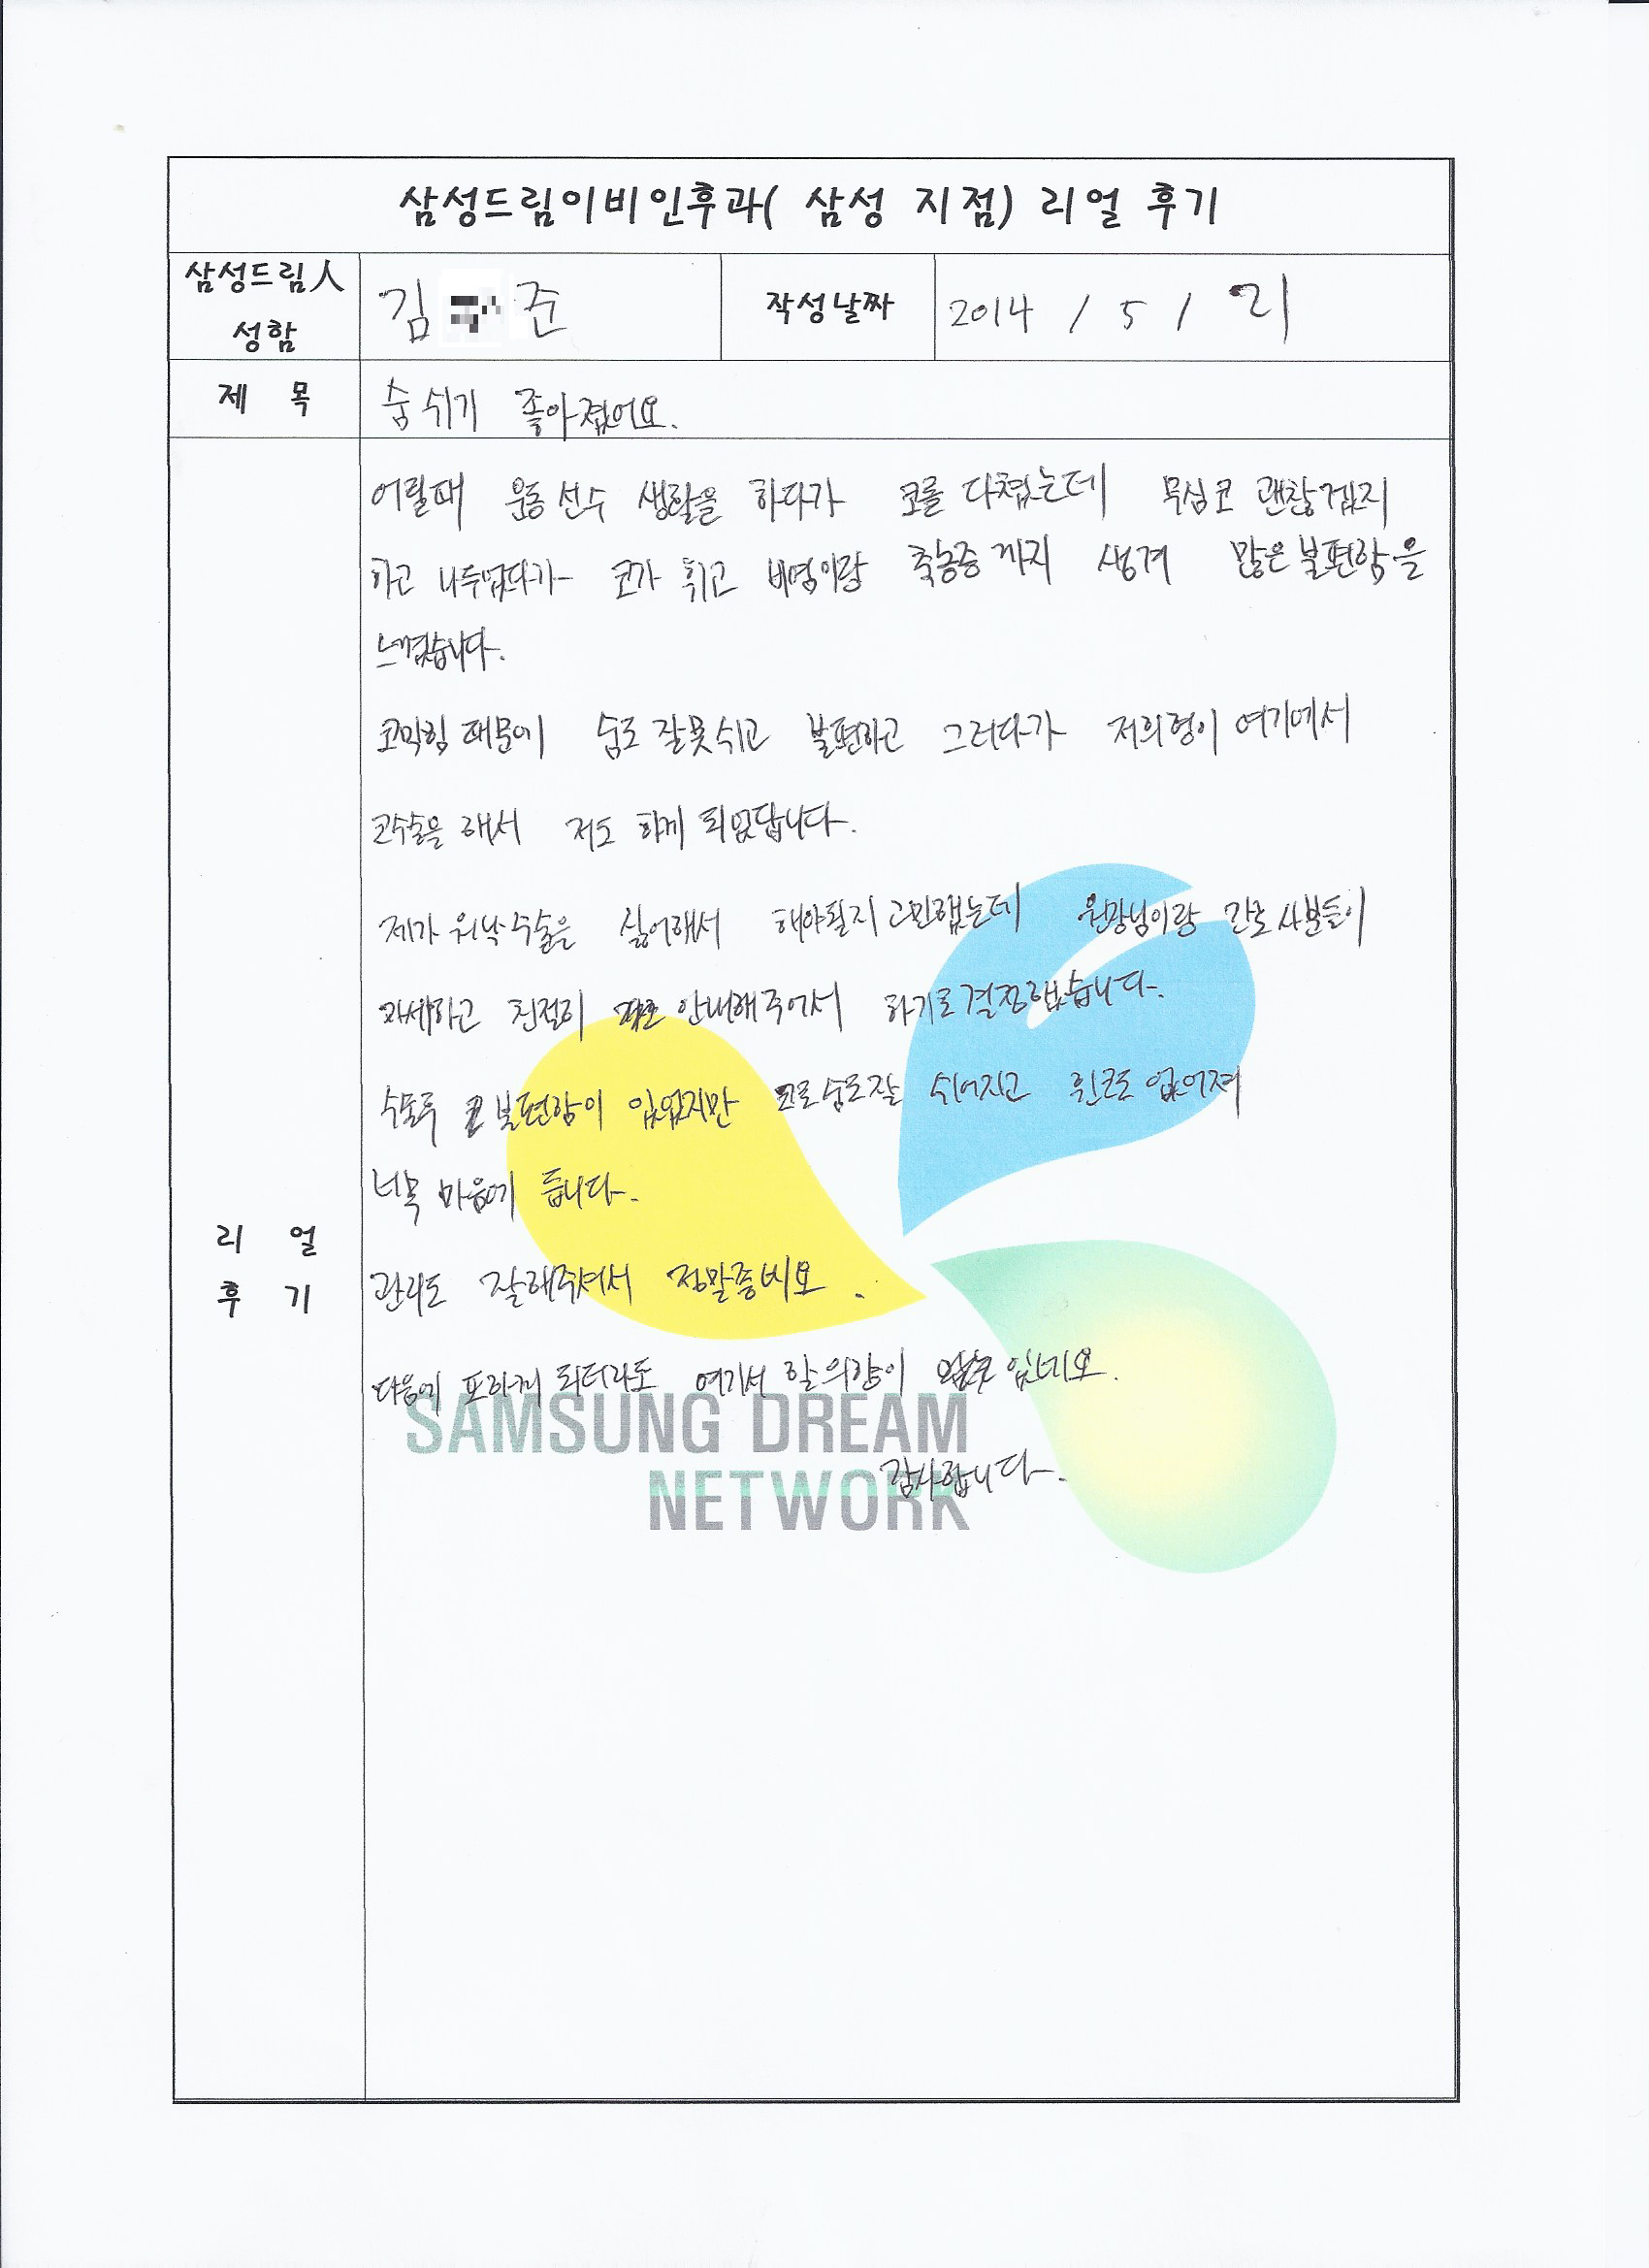 삼성드림이비인후과( 삼성 지점) 리얼 후기
삼성드림人 성함
김 준
작성날짜
2014 / 5 / 21
제 목
숨쉬기 좋아졌어요.
리 얼 후 기
어릴때 운동선수 생활을 하다가 코를 다쳤는데 무심코 괜찮겠지
하고 나두었다가 코가 휘고 비염이랑 축농증까지 생겨 많은 불편함을
느꼈습니다.
코막힘 때문에 숨도 잘못쉬고 불편하고 그러다가 저희형이 여기에서
코수술을 해서 저도 하게 되었답니다.
제가 워낙 수술을 싫어해서 해야될지 고민했는데 원장님이랑 간호사분들이
자세하고 친절히 안내해주어서 하기로 결정했습니다.
수술후 불편함이 있었지만 코로 숨도 잘 쉬어지고 휜코도 없어져
너무 마음에 듭니다.
관리도 잘해주셔서 정말좋네요.
다음에 또하게 되더라도 여기서 할 의향이 있네요.
감사합니다.
SAMSUNG DREAM
NETWORK